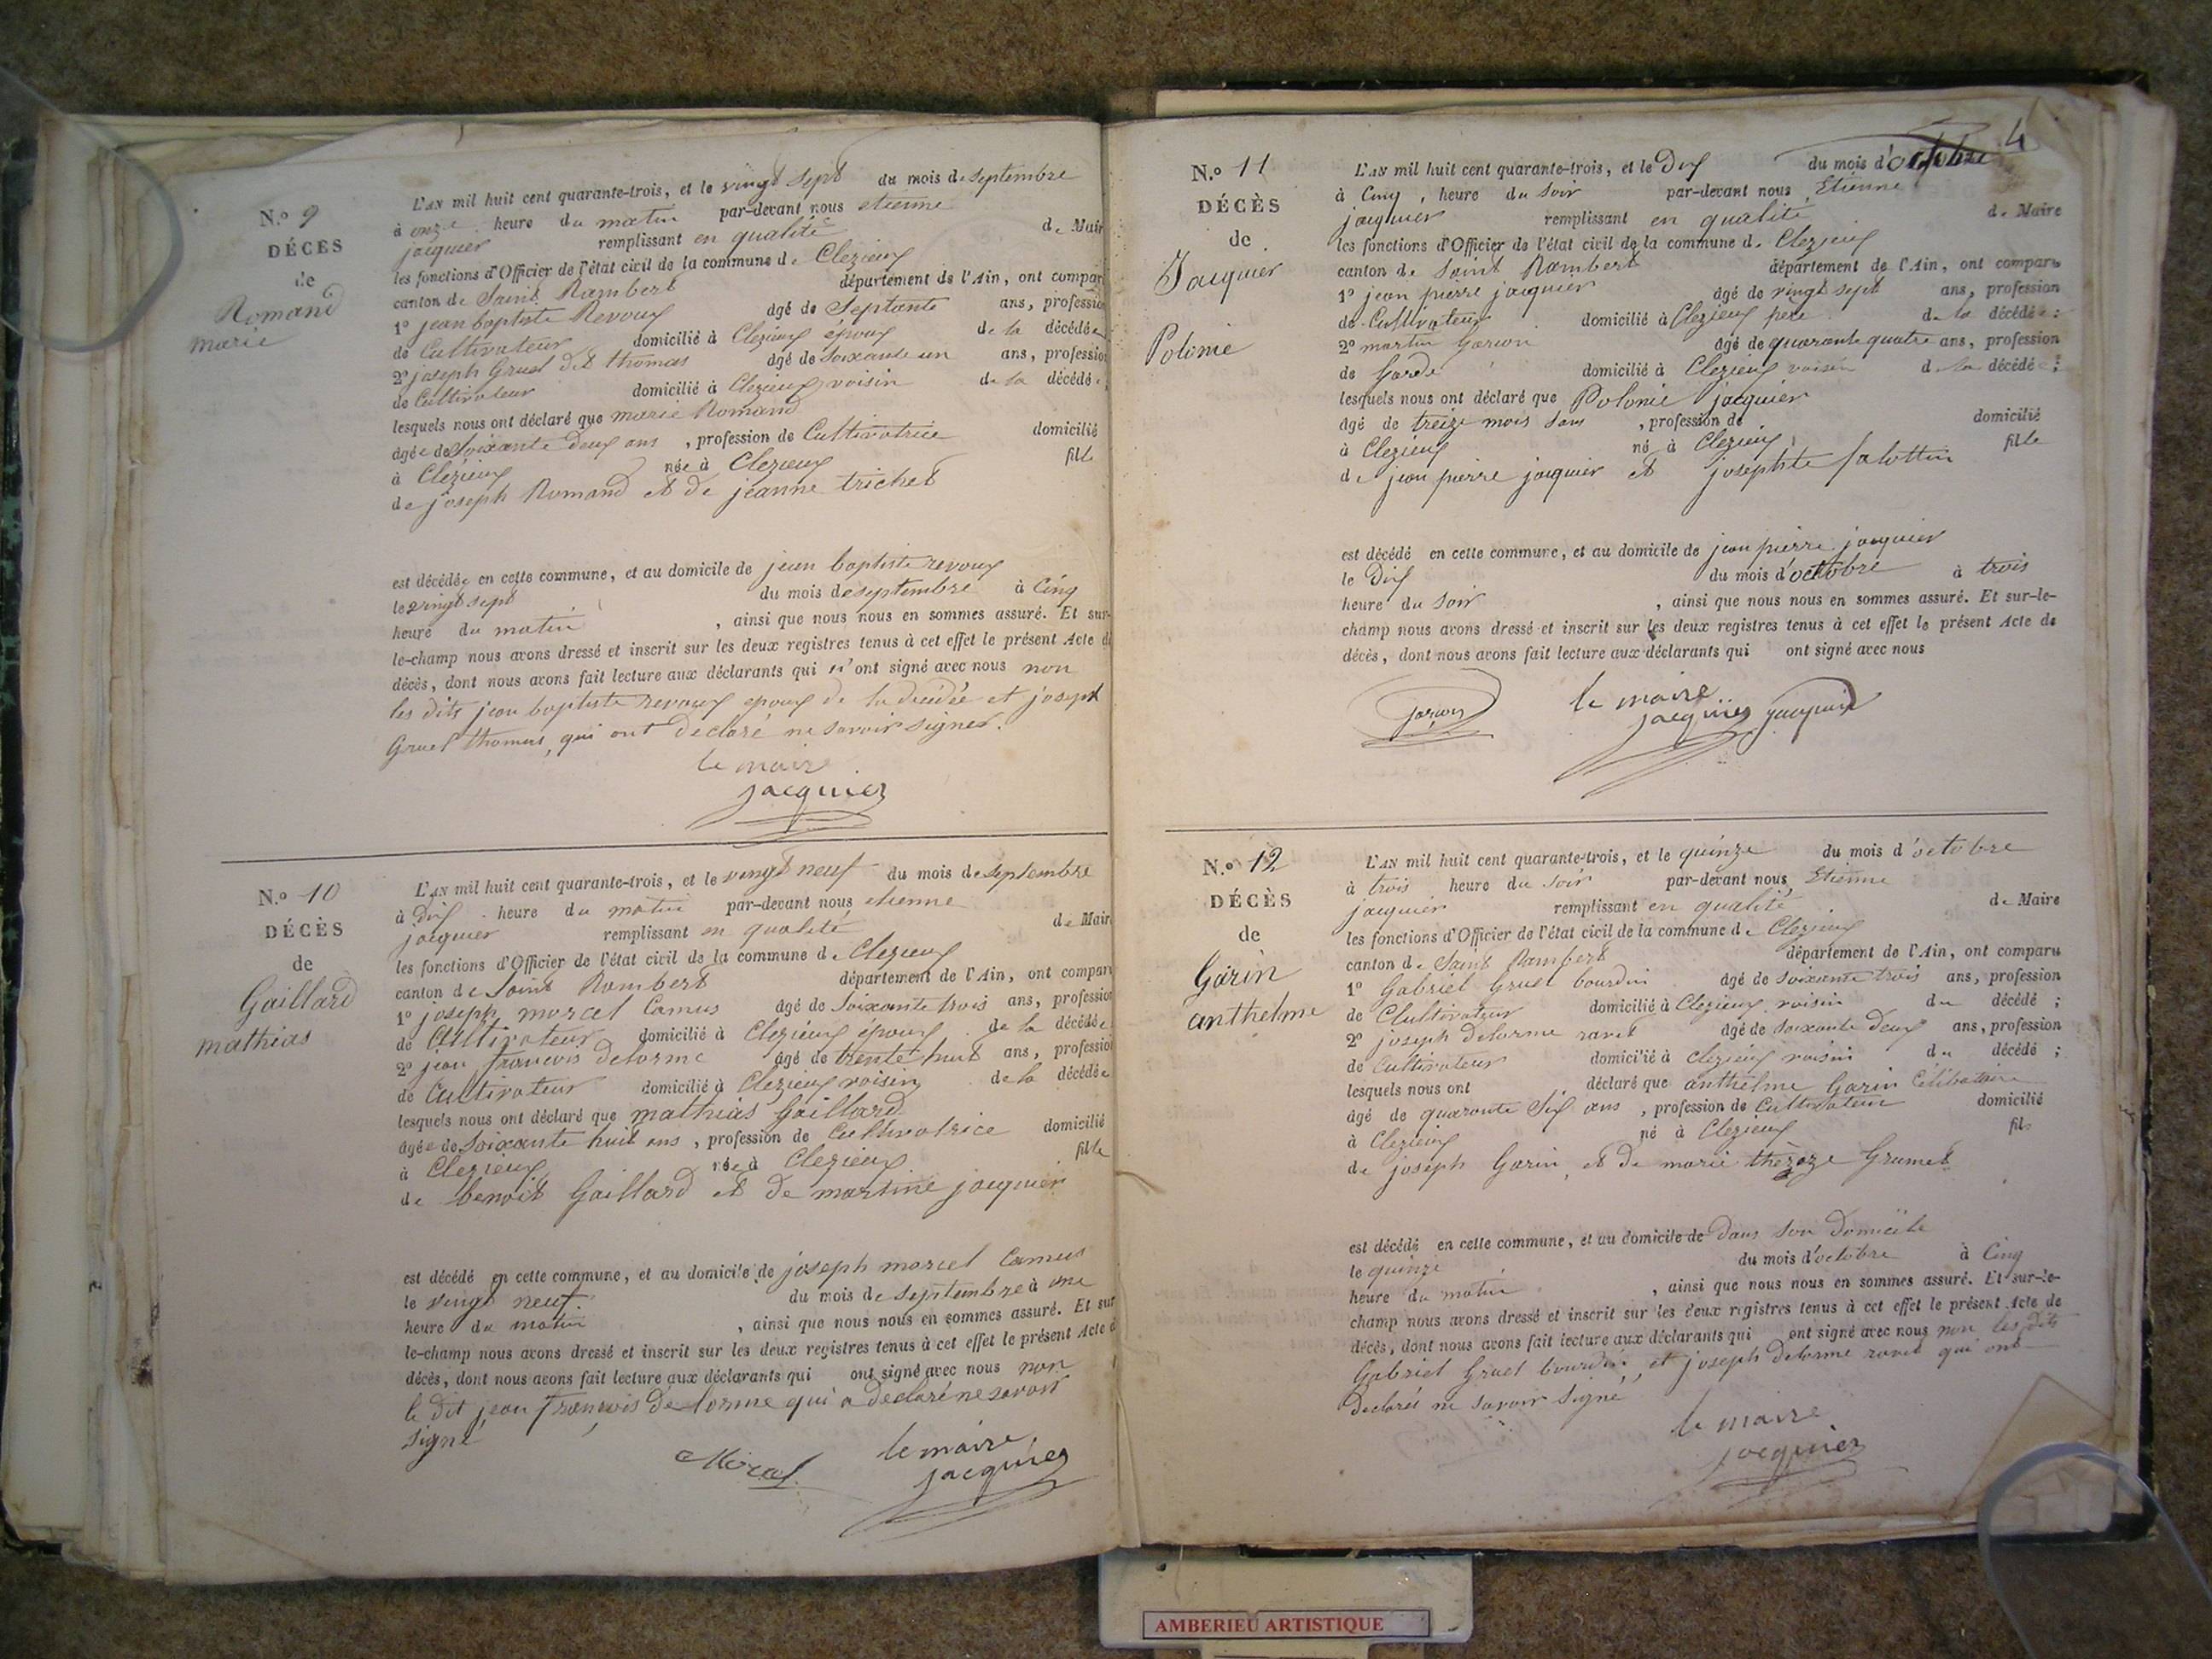 N.º 9
DÉCÈS
de
Romand
marie
L'AN mil huit cent quarante-trois, et le vingt sept du mois de septembre
à onze heure du matin par-devant nous etienne
jacquier remplissant en qualité de Mair
les fonctions d'Officier de l'état civil de la commune de Clezieux
canton de Saint Rambert département de l'Ain, ont compar
1º jean baptiste Revoux âgé de Septante ans, profession
de Cultivateur domicilié à Clezieux époux de la décédée
2º joseph Gruel dit thomas âgé de Soixante un ans, profession
de Cultivateur domicilié à Clezieux voisin de la décédée ;
lesquels nous ont déclaré que marie Romand
âgée de Soixante deux ans , profession de Cultivatrice domicilié
à Clezieux née à Clezieux fille
de joseph Romand et de jeanne trichet
est décédée en cette commune, et au domicile de jean baptiste revoux
le vingt sept du mois de septembre à Cinq
heure du matin , ainsi que nous nous en sommes assuré. Et sur-
le-champ nous avons dressé et inscrit sur les deux registres tenus à cet effet le présent Acte d
décès, dont nous avons fait lecture aux déclarants qui n'ont signé avec nous non
les dits jean baptiste revoux epoux de la decédée et joseph
Gruel thomas, qui ont declaré ne savoir signer.
le maire
jacquier
N.º 10
DÉCÈS
de
Gaillard
mathias
L'AN mil huit cent quarante-trois, et le vingt neuf du mois de septembre
à dix heure du matin par-devant nous etienne
jacquier remplissant en qualité de Mair
les fonctions d'Officier de l'état civil de la commune de Clezieux
canton de Saint Rambert département de l'Ain, ont compar
1º joseph marcel Camus âgé de Soixante trois ans, profession
de Cultivateur domicilié à Clezieux époux de la décédée
2º jean francois delorme âgé de trente huit ans, profession
de Cultivateur domicilié à Clezieux voisin de la décédée
lesquels nous ont déclaré que mathias Gaillard
âgée de Soixante huit ans , profession de Cultivatrice domicilié
à Clezieux née à Clezieux fille
de benoit Gaillard et de martine jacquier
est décédé en cette commune, et au domicile de joseph marcel Camus
le vingt neuf. du mois de septembre à une
heure du matin , ainsi que nous nous en sommes assuré. Et sur
le-champ nous avons dressé et inscrit sur les deux registres tenus à cet effet le présent Acte d
décès, dont nous avons fait lecture aux déclarants qui ont signé avec nous non
le dit jean françois delorme qui a declaré ne savoir
signé
le maire
jacquier
N.º 11
DÉCÈS
de
Jacquier
Polonie
4
L'AN mil huit cent quarante-trois, et le Dix du mois d'octobre
à Cinq , heure du soir par-devant nous Etienne
jacquier remplissant en qualité de Maire
les fonctions d'Officier de l'état civil de la commune de Clezieux
canton de Saint Rambert département de l'Ain, ont comparu
1º jean pierre jacquier âgé de vingt sept ans, profession
de Cultivateur domicilié à Clezieux pere de la décédée ;
2º martin garion âgé de quarante quatre ans, profession
de Garde domicilié à Clezieux voisin de la décédée ;
lesquels nous ont déclaré que Polonie jacquier
âgé de treize mois sans , profession de domicilié
à Clezieux né à Clezieux fille
de jean pierre jacquier et josephte
est décédé en cette commune, et au domicile de jean pierre jacquier
le Dix du mois d'octobre à trois
heure du soir , ainsi que nous nous en sommes assuré. Et sur-le-
champ nous avons dressé et inscrit sur les deux registres tenus à cet effet le présent Acte de
décès, dont nous avons fait lecture aux déclarants qui ont signé avec nous
le maire
jacquier
N.º 12
DÉCÈS
de
Garin
anthelme
L'AN mil huit cent quarante-trois, et le quinze du mois d'octobre
à trois heure du soir par-devant nous Etienne
jacquier remplissant en qualité de Maire
les fonctions d'Officier de l'état civil de la commune de Clezieux
canton de Saint Rambert département de l'Ain, ont comparu
1º Gabriel Gruel bourdin âgé de Soixante trois ans, profession
de Clultivateur domicilié à Clezieux voisin du décédé ;
2º joseph delorme ravet âgé de Soixante Deux ans, profession
de Cultivateur domicilié à Clezieux voisin du décédé ;
lesquels nous ont déclaré que anthelme Garin Célibataire
âgé de quarante Six ans , profession de Cultivateur domicilié
à Clezieux né à Clezieux fils
de joseph Garin, et de marie thèrèze Grumet
est décédé en cette commune, et au domicile de Dans son Domicile
le quinze du mois d'octobre à Cinq
heure du matin , ainsi que nous nous en sommes assuré. Et sur-le-
champ nous avons dressé et inscrit sur les deux registres tenus à cet effet le présent Acte de
décès, dont nous avons fait lecture aux déclarants qui ont signé avec nous non les dits
Gabriel Gruel bourdin, et joseph delorme ravet qui ont
Declarés ne savoir signé
le maire
jacquier
AMBERIEU ARTISTIQUE